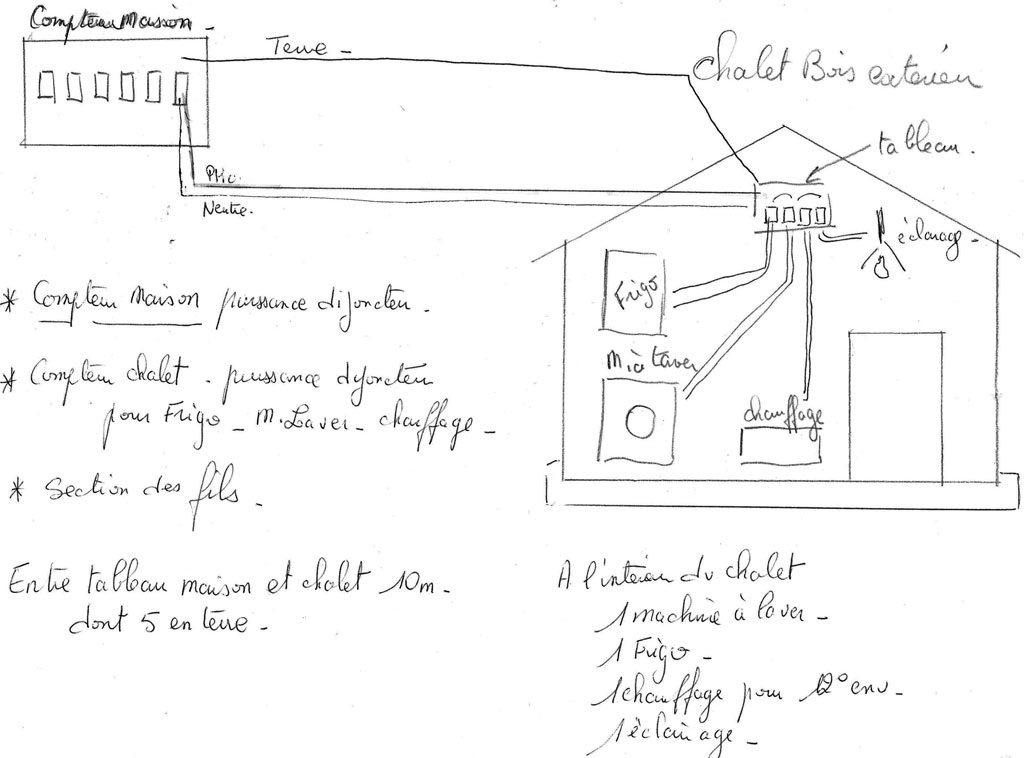 Compteur Maison -
Terre -
Chalet Bois extérieur
tableau.
Phe.
Neutre.
éclairage -
Frigo
M. à laver
chauffage
* Compteur Maison puissance dijoncteu.
* Compteur chalet. puissance dijoncteu
pour Frigo - M. Laver - chauffage -
* Section des fils -
Entre tableau maison et chalet 10m -
dont 5 en terre -
A l'intérieu du chalet
1 machine à laver -
1 Frigo -
1 chauffage pour 12° env -
1 éclairage -